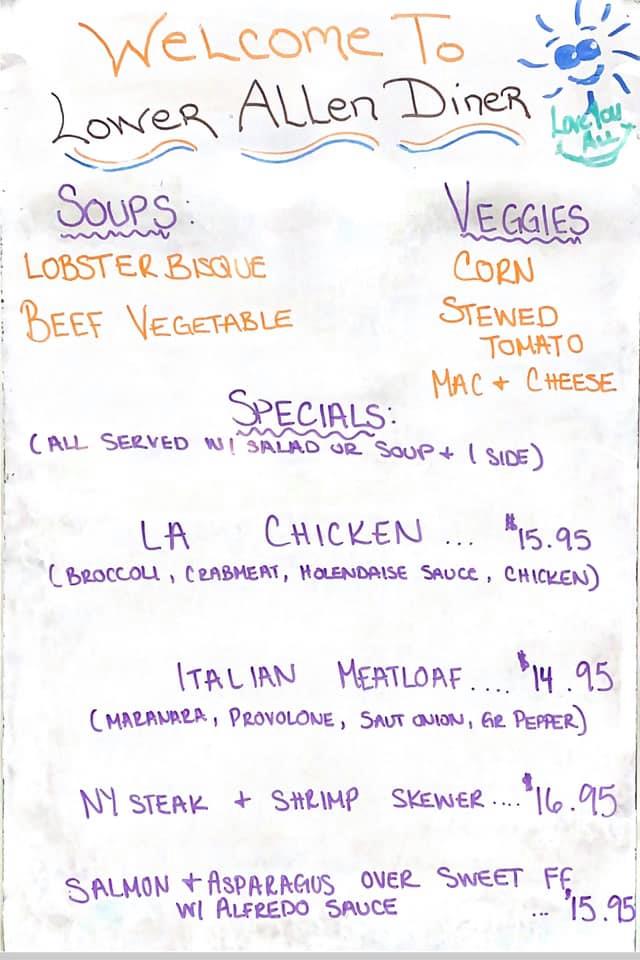 WELCOME TO
LOWER ALLEN DINER
LOVE YOU
ALL
SOUPS:
LOBSTER BISQUE
BEEF VEGETABLE
VEGGIES
CORN
STEWED
TOMATO
MAC + CHEESE
SPECIALS:
(ALL SERVED W/ SALAD OR SOUP + 1 SIDE)
LA CHICKEN ... $15.95
(BROCCOLI, CRABMEAT, HOLENDAISE SAUCE, CHICKEN)
ITALIAN MEATLOAF .... $14.95
(MARANARA, PROVOLONE, SAUT ONION, GR PEPPER)
NY STEAK + SHRIMP SKEWER .... $16.95
SALMON + ASPARAGUS OVER SWEET FF
W/ ALFREDO SAUCE ... $15.95